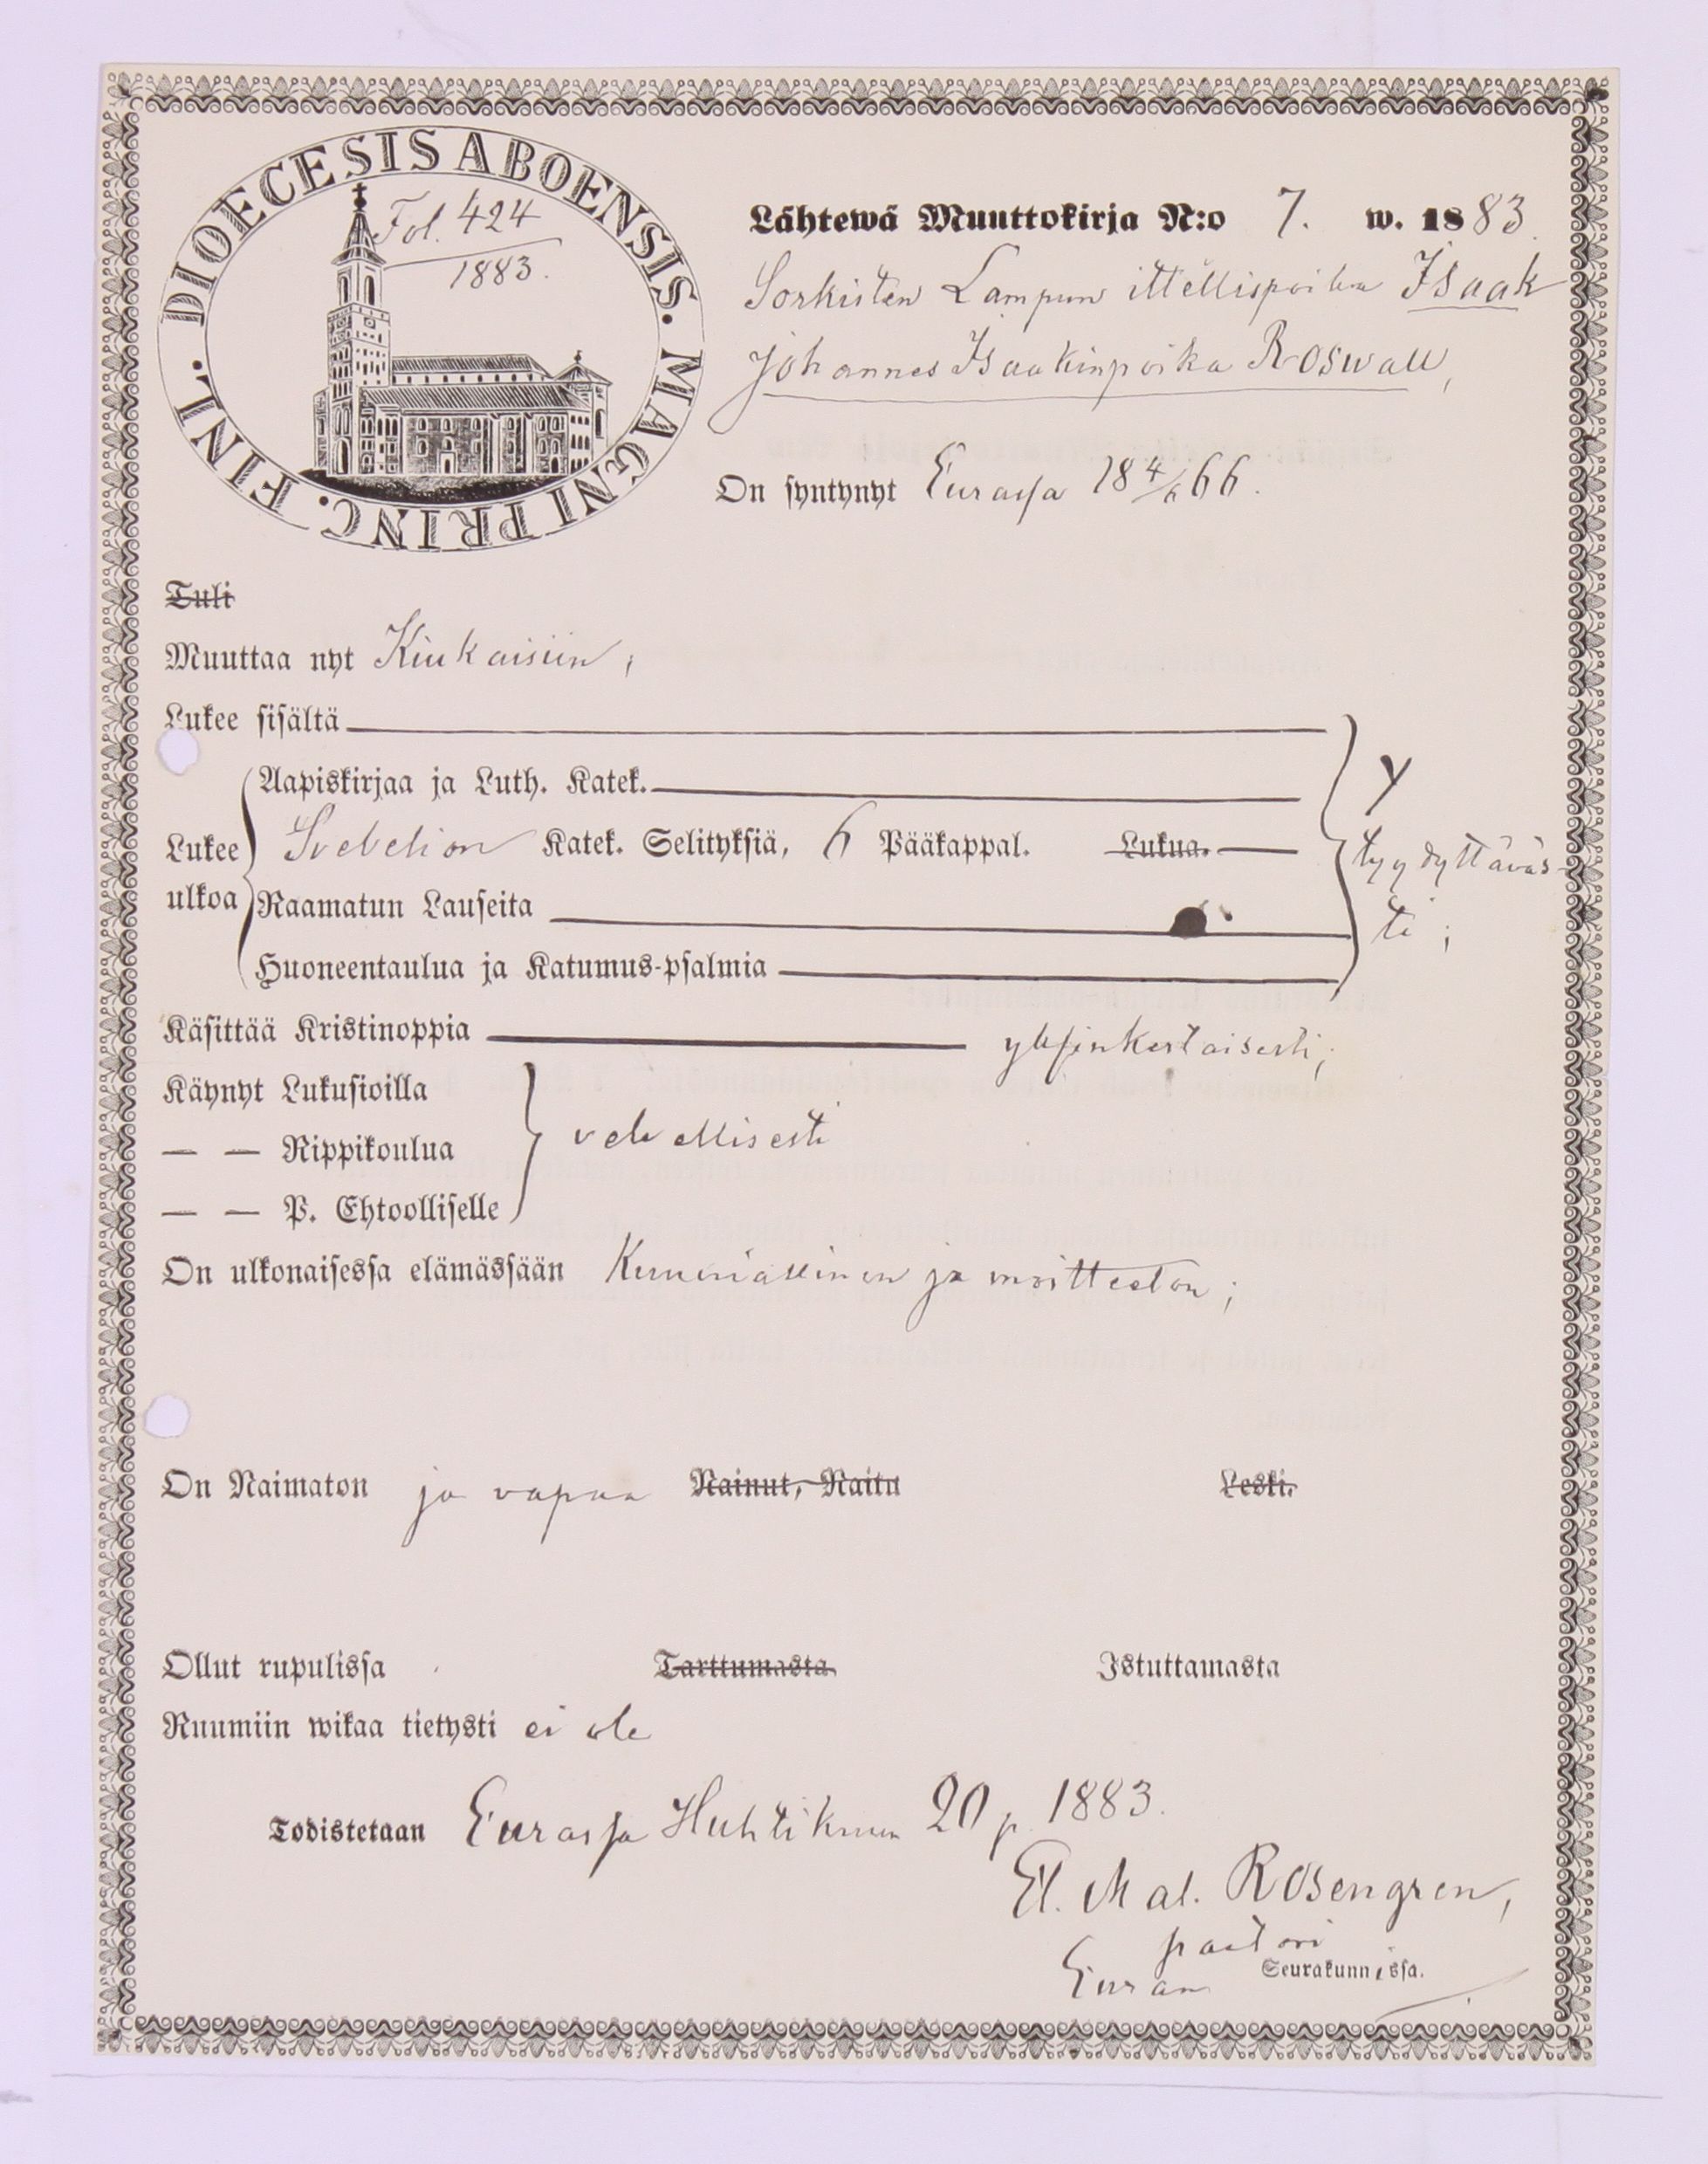 DIOECESIS ABOENSIS. MAGNI PRINC. FINL.
Fol. 424
1883.
Lähtewä Muuttokirja N:o 7. w. 1883.
Sorkisten Lampun ittellispoika Isaak
Johannes Isaakinpoika Roswall,
On syntynyt Eurassa 18 4/6 66.
Tuli
Muuttaa nyt Kiukaisiin;
Lukee sisältä
Aapiskirjaa ja Luth. Katek.
Lukee ulkoa
Svebelion Katek. Selityksiä, 6 Pääkappal. Lukua.
Raamatun Lauseita
Huoneentaulua ja Katumus-psalmia
tyydyttäväs-
ti;
Käsittää Kristinoppia yksinkertaisesti;
Käynyt Lukusioilla
— — Rippikoulua
— — P. Ehtoolliselle
velvollisesti
On ulkonaisessa elämässään Kunniallinen ja moitteeton;
On Naimaton ja vapaa Nainut, Naitu Leski.
Ollut rupulissa Tarttumasta. Istuttamasta
Ruumiin wikaa tietysti ei ole
Todistetaan Eurassa Huhtikuun 20 p. 1883.
El. Mal. Rosengren,
pastori
Euran Seurakunnissa.